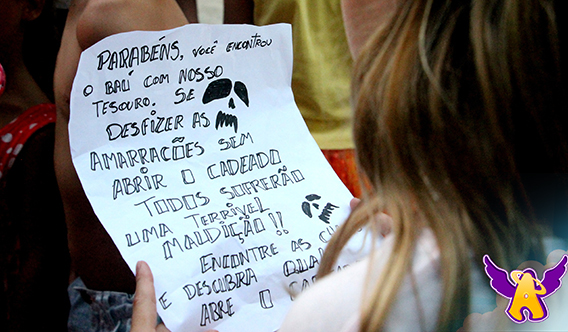 PARABÉNS, VOCÊ ENCONTROU
O BAÚ COM NOSSO
TESOURO. SE
DESFIZER AS
AMARRACÕES SEM
ABRIR O CADEADO
TODOS SOFRERÃO
UMA TERRIVEL
MALDUIÇÃO!!
ENCONTRE AS
E DESCUBRA
ABRE O